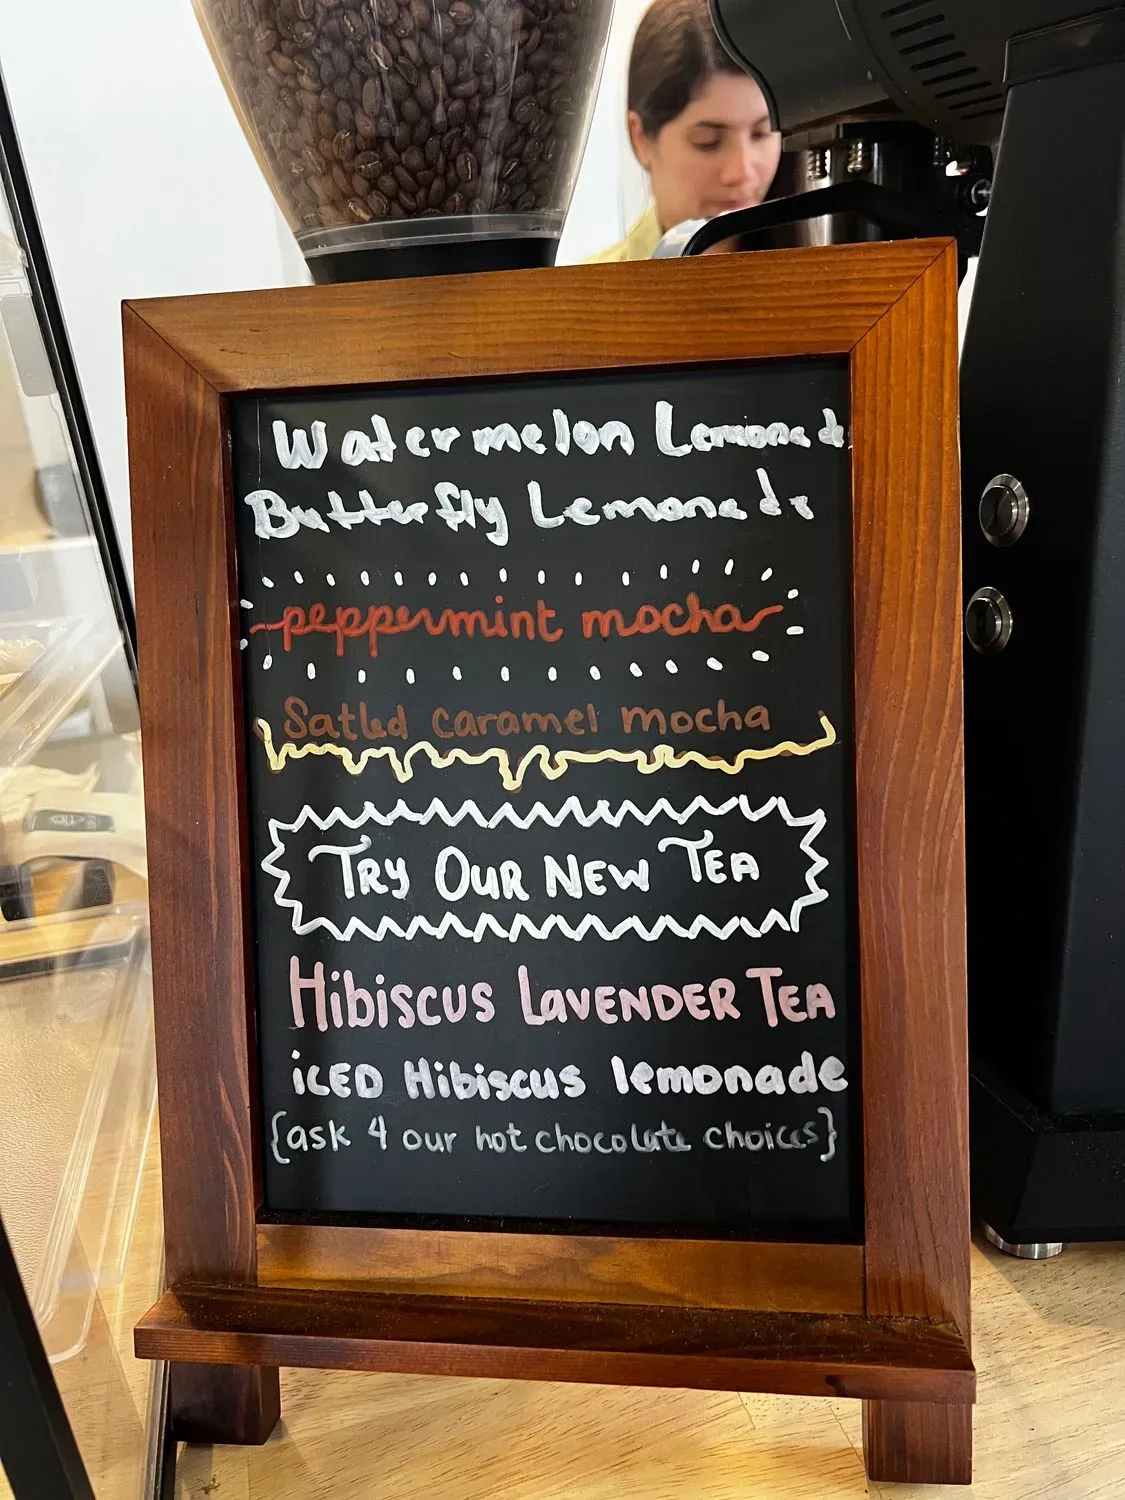 Watermelon Lemonade
Butterfly Lemonade
peppermint mocha
Satled caramel mocha
TRY OUR NEW TEA
HibiscUS LAVENDER TEA
iCED Hibiscus lemonade
{ask 4 our hot chocolate choices}